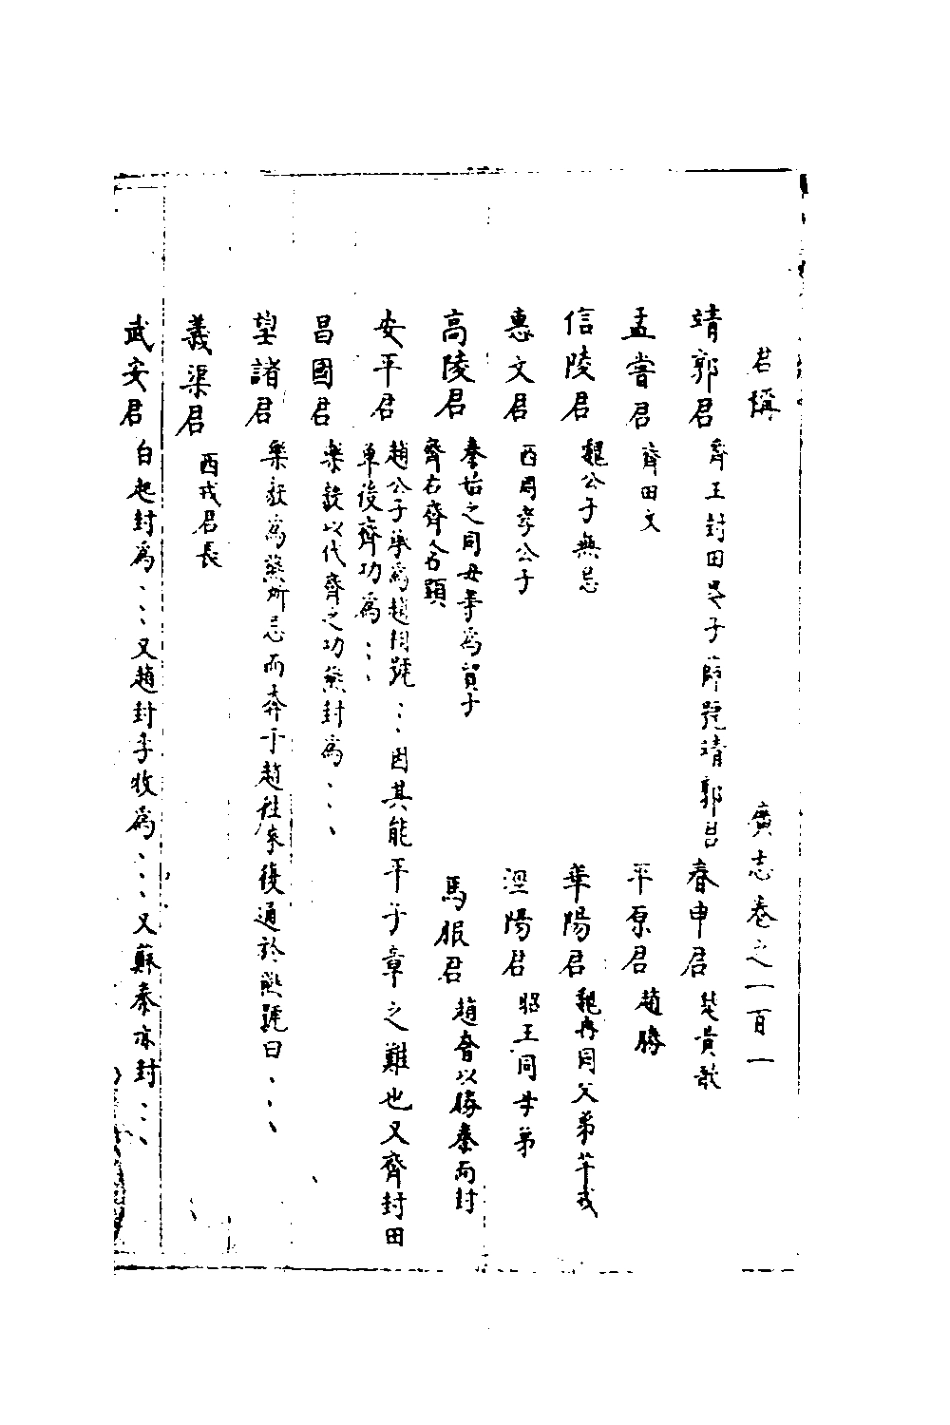 君稱　廣志卷之一百一
靖郭君　齊王封田嬰子薛號靖郭君　春申君　楚黃歇
孟嘗君　齊田文　平原君　趙勝
信陵君　魏公子無忌　華陽君　魏冉同父弟芊戎
惠文君　西周孝公子　涇陽君　昭王同母弟
高陵君　秦始之同母弟為質子
齊右齊令顯　馬服君　趙奢以勝秦而封
安平君　趙公子為趙相號、、、因其能平子章之難也又齊封田
單復齊功為、、、
昌國君　樂毅以代齊之功燕封為、、、
望諸君　樂毅為燕所忌而奔于趙往來復通於燕號曰、、、
義渠君　西戎君長
武安君　白起封為、、、又趙封李牧為、、、又蘇秦亦封、、、